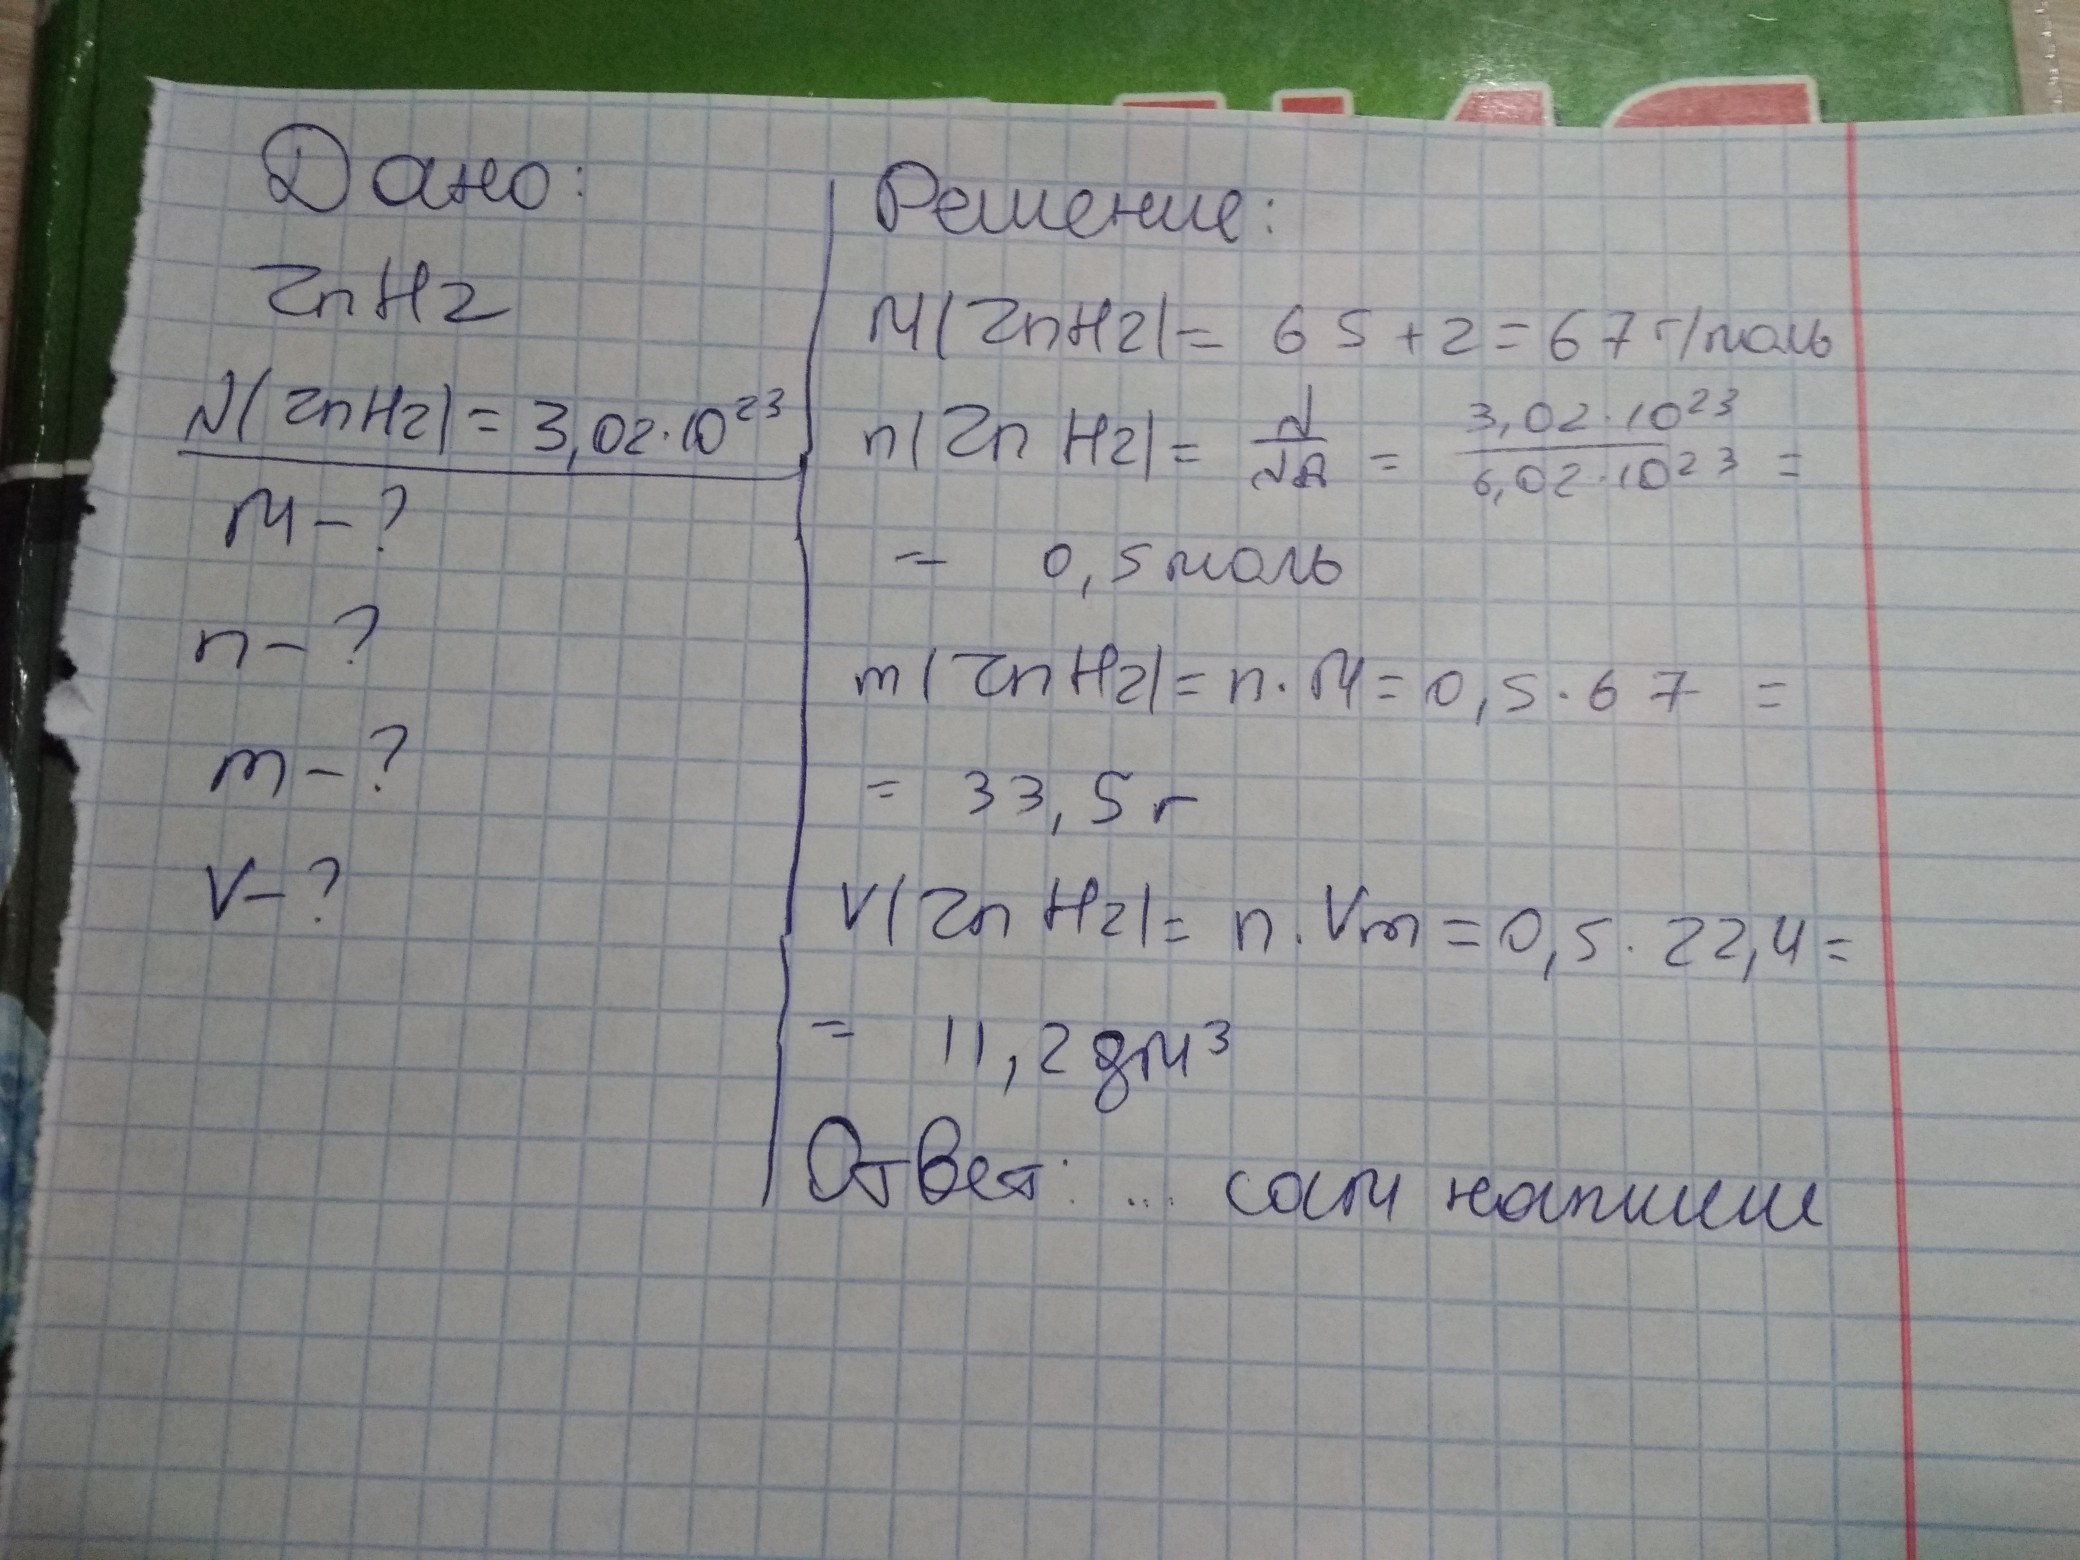 Дано:
ZnH2
N(ZnH2)=3,02·10²³
M-?
n-?
m-?
V-?
Решение:
M(ZnH2)= 65+2=67г/моль
n(ZnH2)= N/NA = 3,02·10²³/6,02·10²³ =
= 0,5моль
m(ZnH2)=n·M=0,5·67 =
= 33,5г
V(ZnH2)= n·Vm=0,5·22,4=
= 11,2дм³
Ответ: ... сам напиши